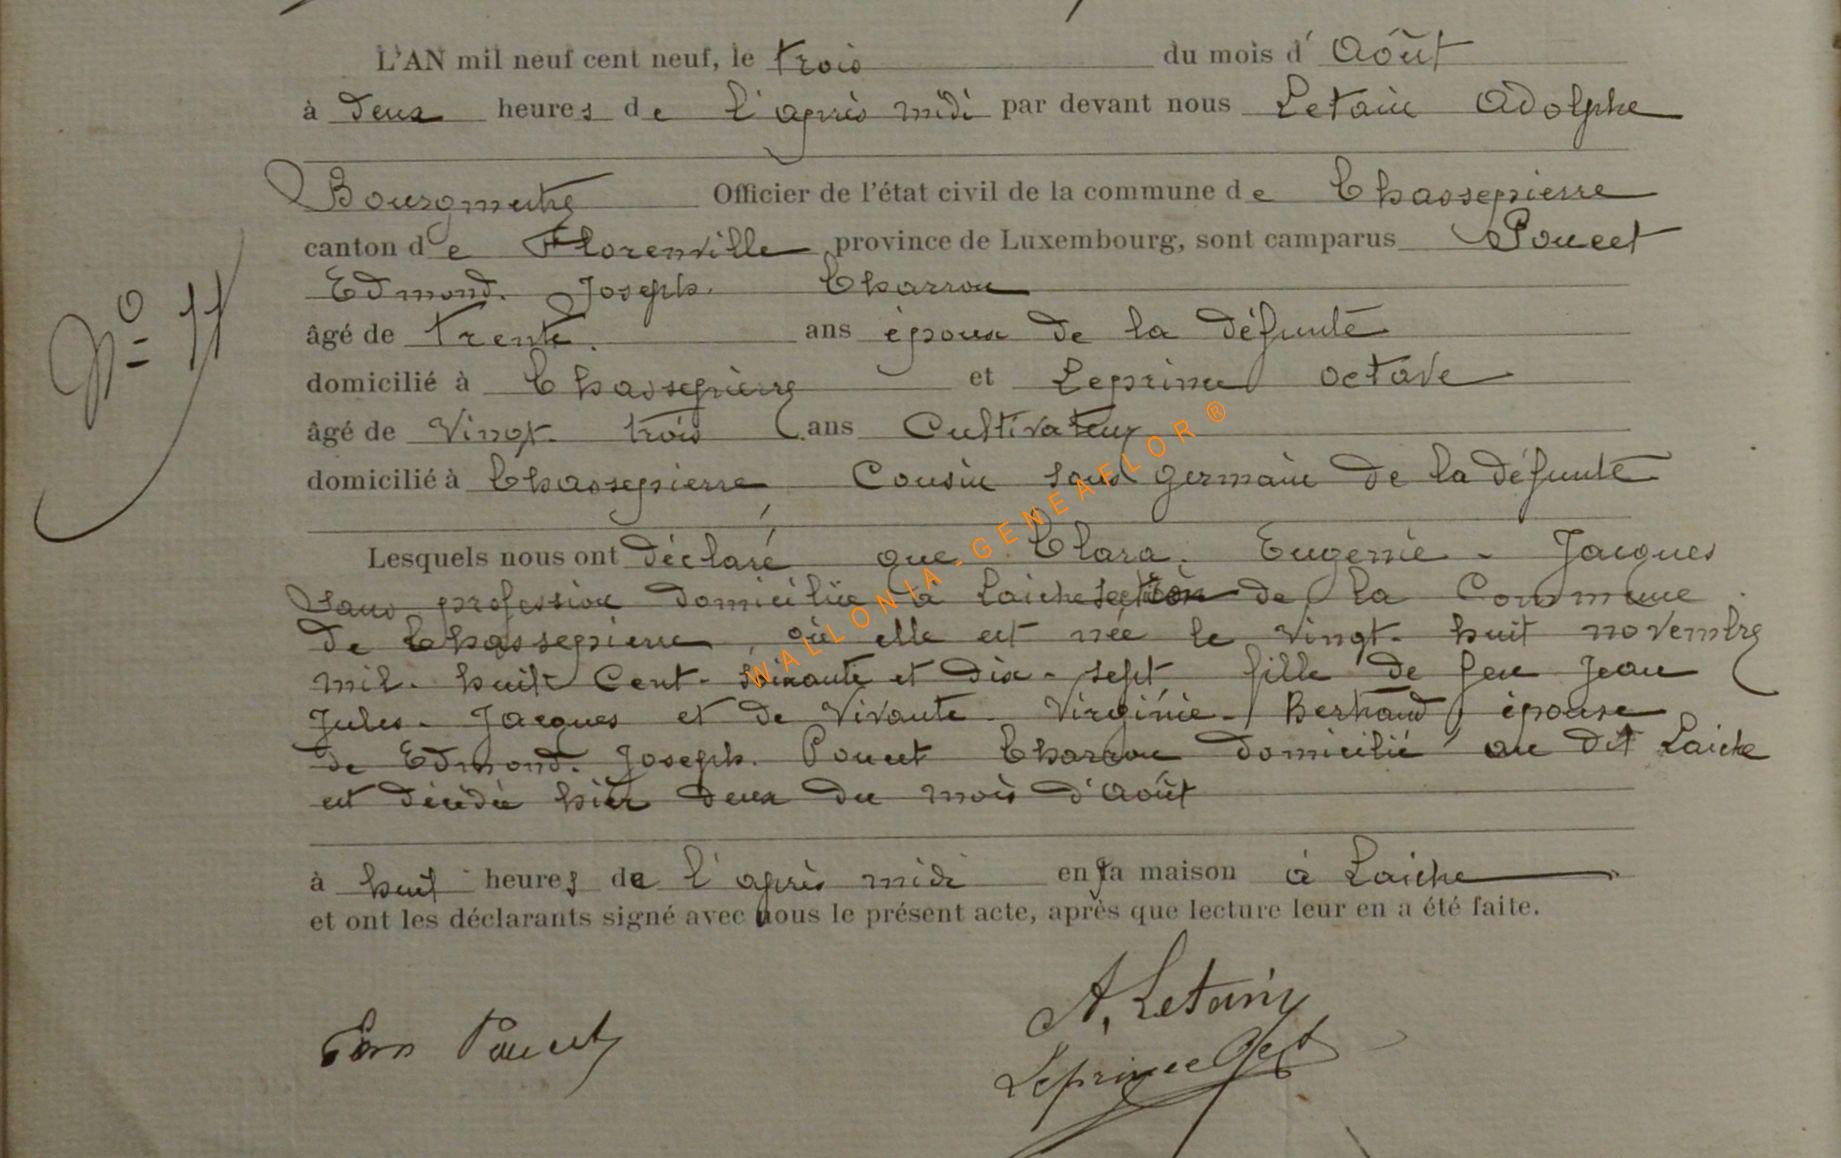 L'AN mil neuf cent neuf, le trois du mois d' Août
à deux heures de l'après midi par devant nous Letain Adolphe
Bourgmestre Officier de l'état civil de la commune de Chassepierre
canton de Florenville province de Luxembourg, sont camparus Poncet
Edmond. Joseph. Charron
N° 11
âgé de trente. ans époux de la défunte
domicilié à Chassepierre et Leprince Octave
âgé de Vingt- trois ans Cultivateur
domicilié à Chassepierre Cousin sous germain de la défunte
Lesquels nous ont déclaré que Clara. Eugenie - Jacques
Sans profession domiciliée à Laiche section de la Commune
de Chassepierre, où elle est née le Vingt- huit novembre
mil. huit Cent- soixante et dix- sept fille de feu Jean
Jules- Jacques et de Vivante- Virginie- Bertrand, épouse
de Edmond. Joseph. Poncet Charron domicilié au dit Laiche
est décédée hier deux du mois d'Août
à huit heures de l'après midi en sa maison à Laiche
et ont les déclarants signé avec nous le présent acte, après que lecture leur en a été faite.
A. Letain
Poncet
Leprince Oct
WALLONIA-GENEAFLOR ®